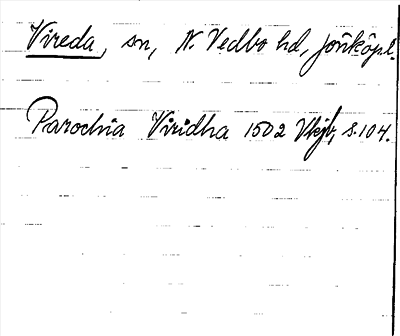 Vireda, sn, N. Vedbo hd, Jönköpl.
Parochia Viridha 1502 Vkjb, s.104.